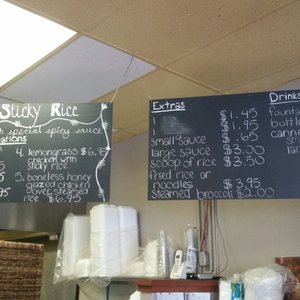 Sticky Rice
special spicy sauce
4. lemongrass $6.
chicken with
sticky rice
5. boneless honey
glazed chicken
over steamed
rice $6.95
Extras
1 $1.45
1 $1.95
small sauce $.65
large sauce $3.00
scoop of rice $3.50
fried rice or
noodles $3.95
steamed broccoli $2.00
Drinks